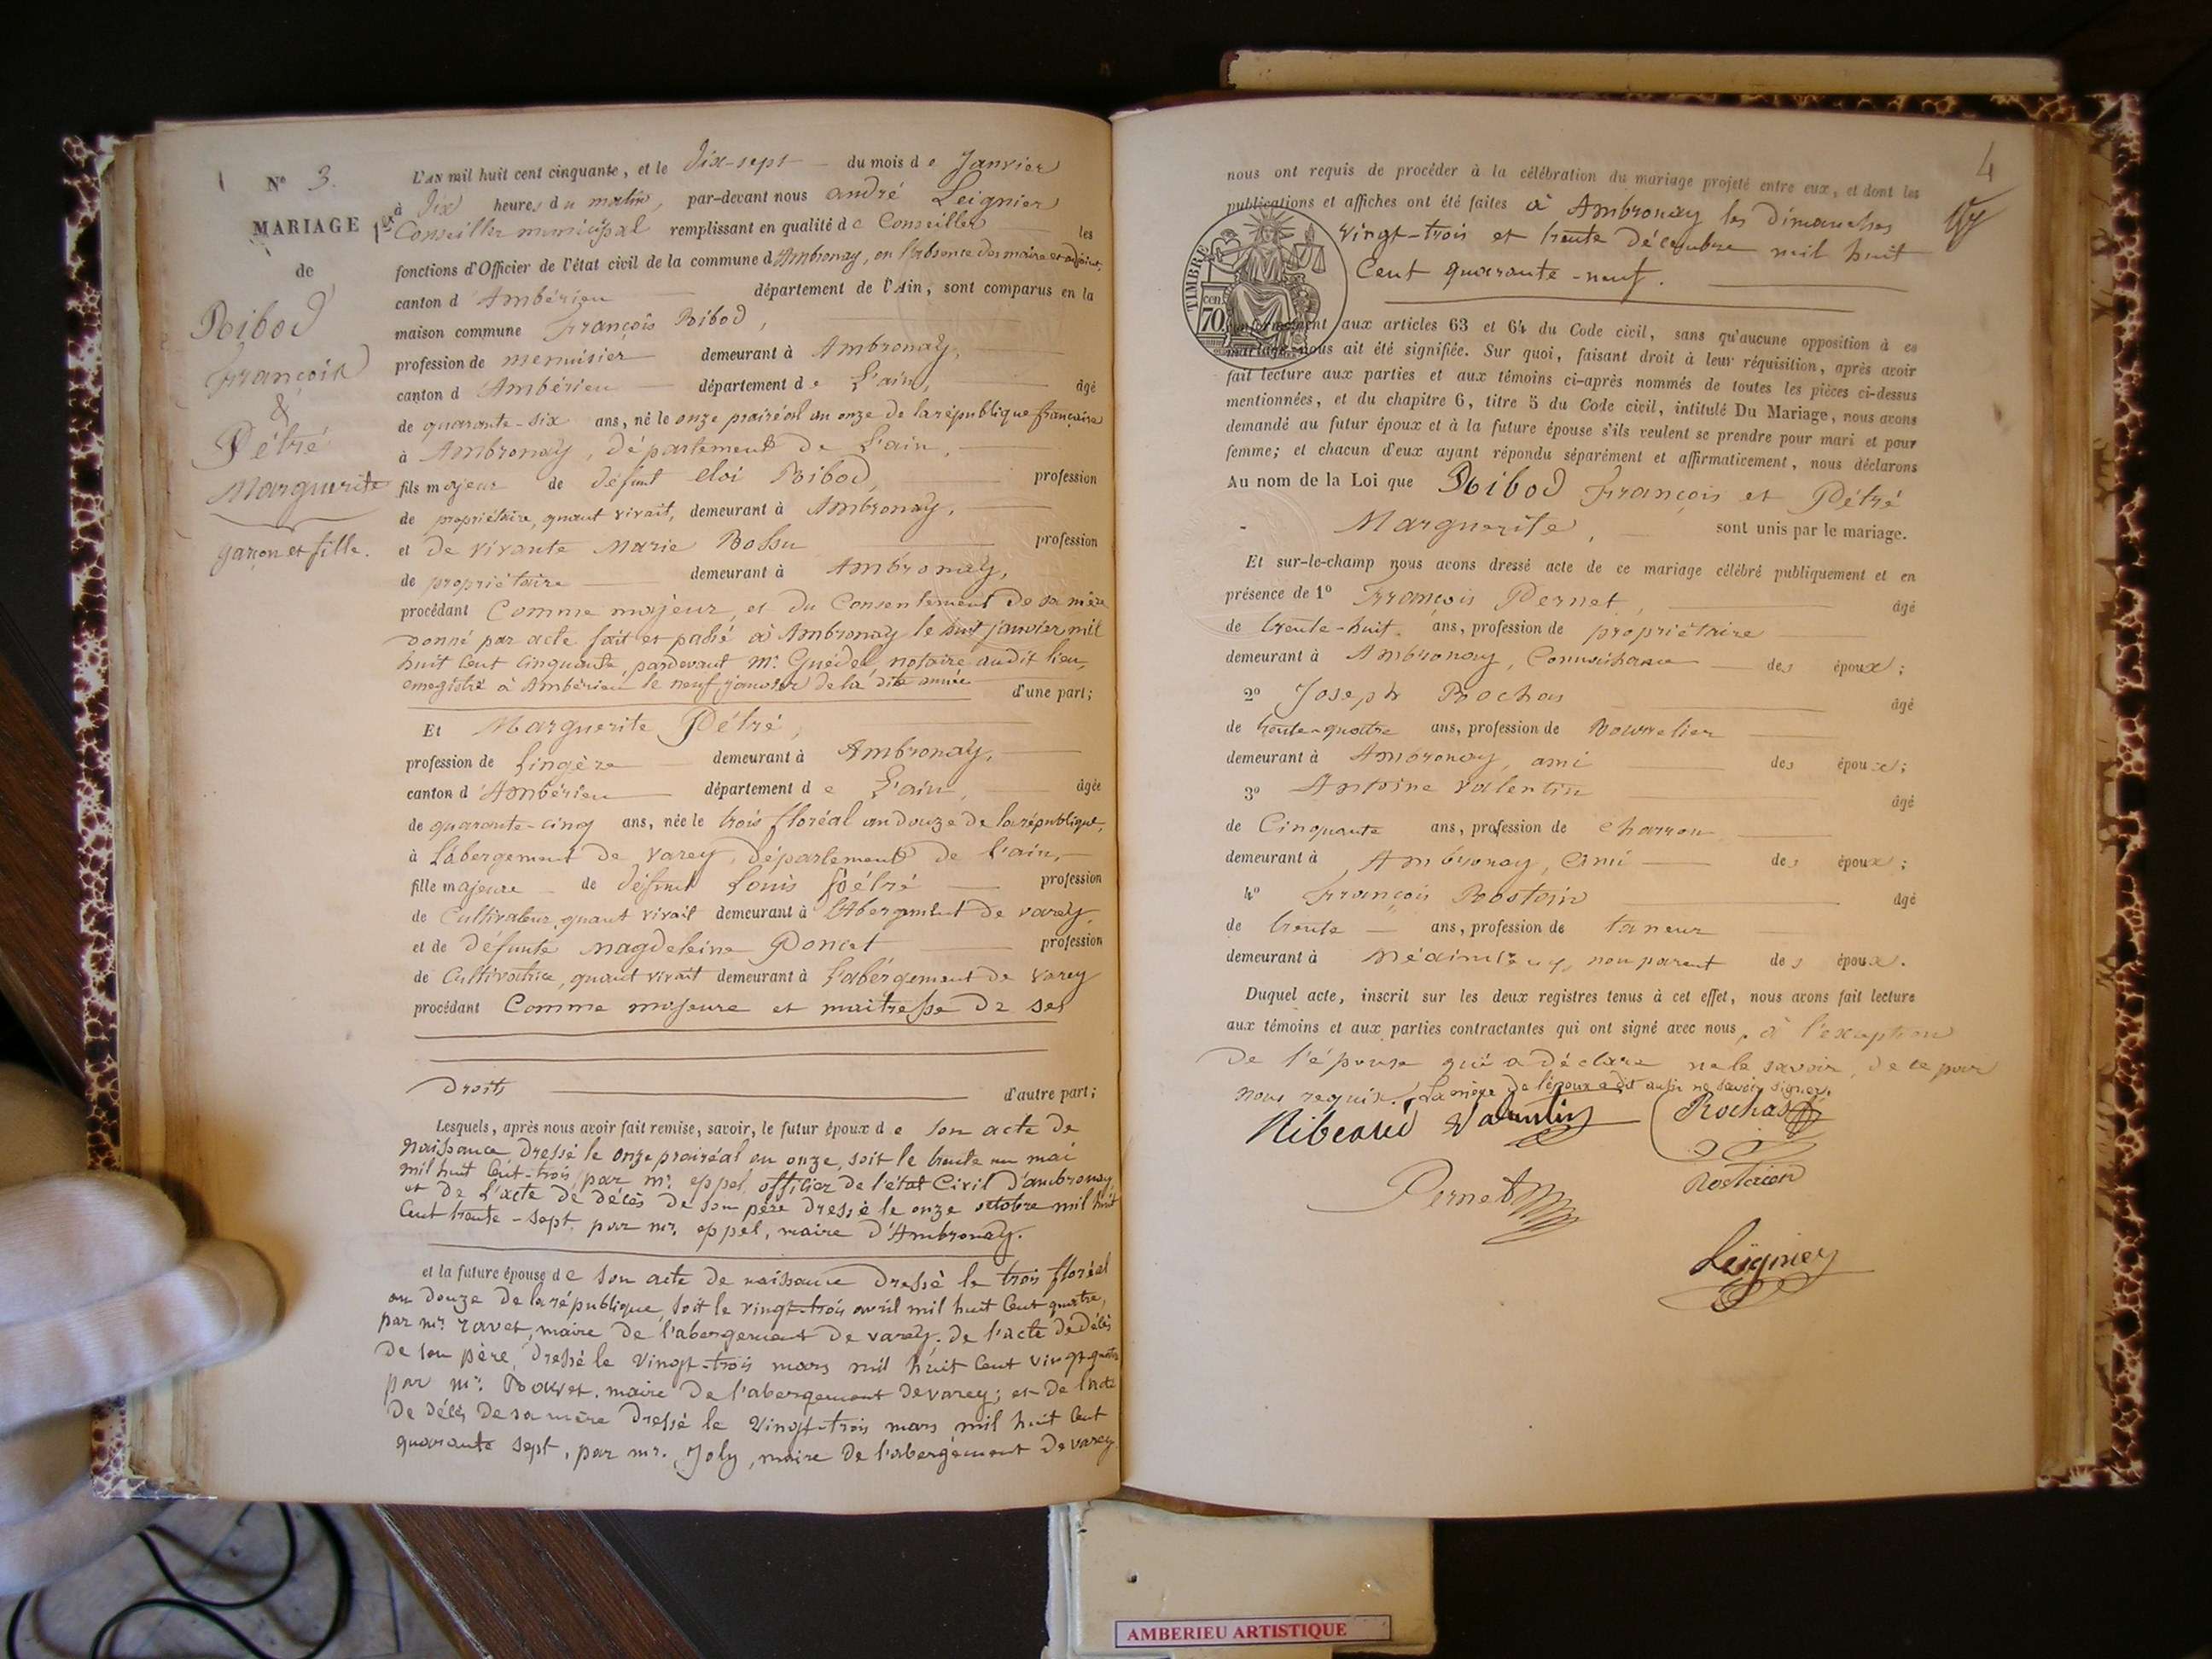 N° 3.
MARIAGE
de
Ribod
François
&
Pétré
Marguerite
garçon et fille.
L'AN mil huit cent cinquante, et le dix-sept du mois de Janvier
à dix heures du matin, par-devant nous andré Leignier
1er Conseiller municipal remplissant en qualité de Conseiller les
fonctions d'Officier de l'état civil de la commune d'Ambronay, en l'absence des maire et adjoint,
canton d'Ambérieu département de l'Ain, sont comparus en la
maison commune François Ribod,
profession de menuisier demeurant à Ambronay,
canton d'Ambérieu département de L'ain, âgé
de quarante-six ans, né le onze prairéal an onze de la république française
à Ambronay, département de L'ain,
fils majeur de défunt eloi Ribod, profession
de propriétaire, quant vivait, demeurant à Ambronay,
et de vivante Marie Bossu profession
de propriétaire demeurant à Ambronay,
procédant Comme majeur, et du Consentement de sa mère
donné par acte fait et passé à Ambronay le huit janvier mil
huit Cent Cinquante, pardevant mr. Guédel, notaire audit lieu,
enregistré à Ambérieu le neuf janvier de la dite année d'une part;
Et Marguerite Pétré,
profession de Lingère demeurant à Ambronay,
canton d'Ambérieu département de L'ain, âgée
de quarante-cinq ans, née le trois floréal an douze de la république,
à L'abergement de Varey, département de L'ain,
fille majeure de défunt Louis Pétré profession
de Cultivateur, quant vivait demeurant à L'Abergement de varey,
et de défunte Magdeleine Poncet profession
de Cultivatrice, quant vivait demeurant à L'abergement de Varey
procédant Comme majeure et maitresse de ses
Droits d'autre part;
Lesquels, après nous avoir fait remise, savoir, le futur époux de son acte de
naissance dressé le onze prairéal an onze, soit le trente un mai
mil huit Cent-trois, par mr. eppel, officier de l'état Civil d'ambronay,
et de L'acte de décès de son père dressé le onze octobre mil huit
Cent trente-sept, par mr. eppel, maire d'Ambronay.
et la future épouse de son acte de naissance dressé le trois floréal
an douze de la république, soit le vingt-trois avril mil huit Cent quatre,
par mr. ravet, maire de l'abergement de varey. de l'acte de décès
de son père, dressé le vingt-trois mars mil huit Cent vingt-quatre
par mr. maire de l'abergement de varey; et de l'acte
de décès de sa mère dressé le vingt-trois mars mil huit Cent
quarante sept, par mr. Joly, maire de l'abergement de varey
4
nous ont requis de procéder à la célébration du mariage projeté entre eux, et dont les
publications et affiches ont été faites à Ambronay les dimanches
vingt-trois et trente décembre mil huit
Cent quarante-neuf.
TIMBRE
70 cen
Conformément aux articles 63 et 64 du Code civil, sans qu'aucune opposition à ce
mariage nous ait été signifiée. Sur quoi, faisant droit à leur réquisition, après avoir
fait lecture aux parties et aux témoins ci-après nommés de toutes les pièces ci-dessus
mentionnées, et du chapitre 6, titre 5 du Code civil, intitulé Du Mariage, nous avons
demandé au futur époux et à la future épouse s'ils veulent se prendre pour mari et pour
femme; et chacun d'eux ayant répondu séparément et affirmativement, nous déclarons
Au nom de la Loi que Ribod François et Pétré
Marguerite, sont unis par le mariage.
Et sur-le-champ nous avons dressé acte de ce mariage célébré publiquement et en
présence de 1° François Pernet, âgé
de trente-huit ans, profession de propriétaire
demeurant à Ambronay, Connaissance des époux;
2° Joseph Rochas âgé
de trente-quatre ans, profession de Bourrelier
demeurant à Ambronay, ami des époux;
3° Antoine Valentin âgé
de Cinquante ans, profession de charron
demeurant à Ambronay, ami des époux;
4° François Rostain âgé
de trente ans, profession de taneur
demeurant à non parent des époux.
Duquel acte, inscrit sur les deux registres tenus à cet effet, nous avons fait lecture
aux témoins et aux parties contractantes qui ont signé avec nous, à l'exception
de l'épouse qui a déclaré ne le savoir, de ce par
nous requise. La mère de l'époux a dit aussi ne savoir signer.
Valentin Rochas
Pernet
Leignier
AMBERIEU ARTISTIQUE